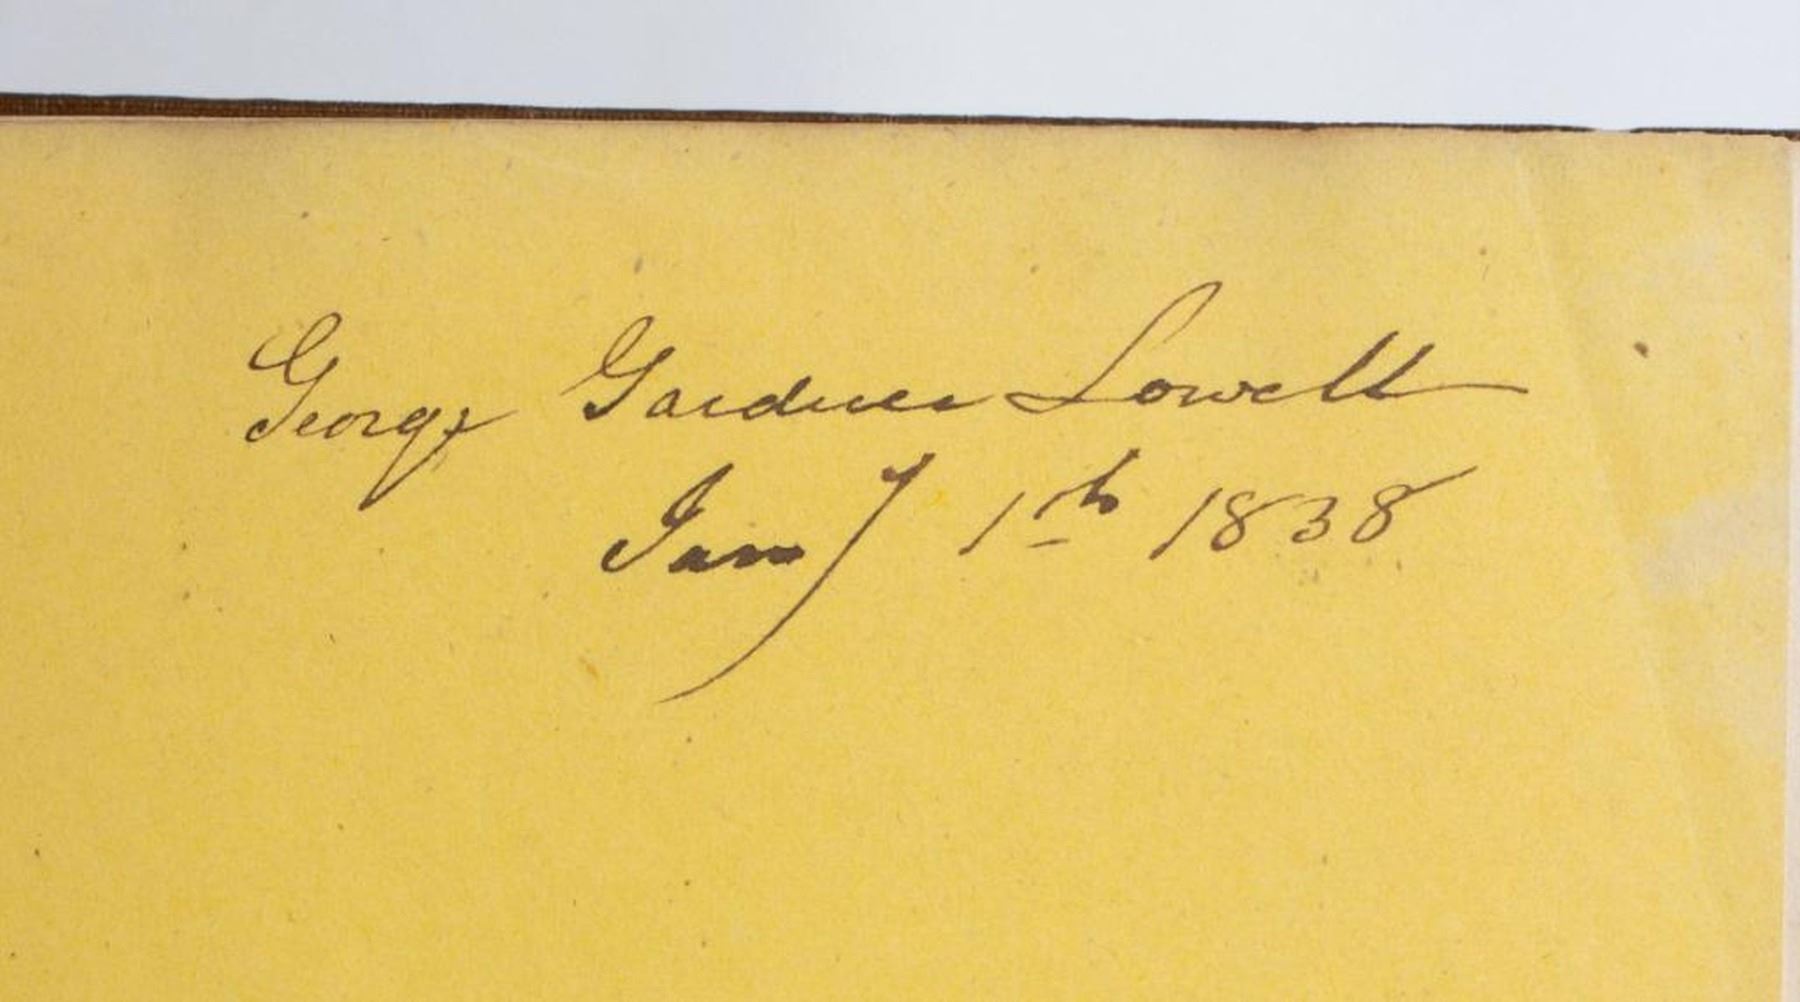 George Gardner Lowell
Jany 1th 1838